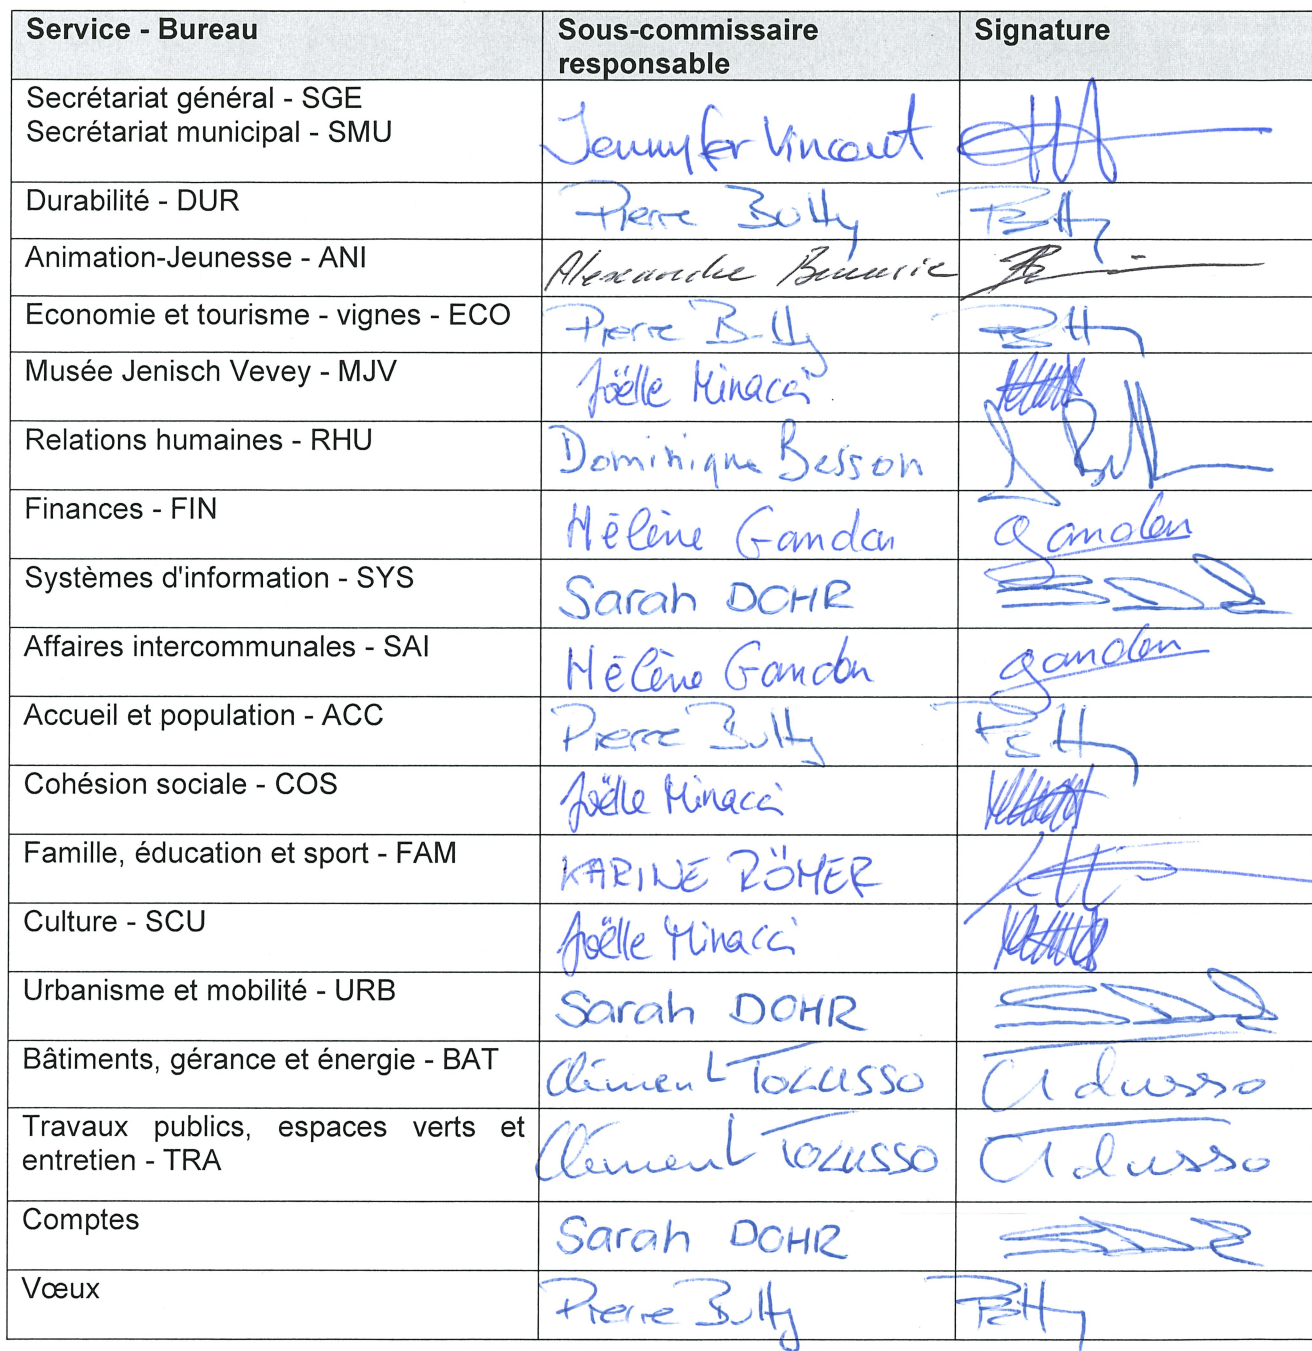 Service - Bureau
Sous-commissaire responsable
Signature
Secrétariat général - SGE
Secrétariat municipal - SMU
Jennyfer Vincent
Durabilité - DUR
Pierre Butty
PButty
Animation-Jeunesse - ANI
Alexandre
Economie et tourisme - vignes - ECO
Pierre Butty
PButty
Musée Jenisch Vevey - MJV
Joëlle Minacci
Relations humaines - RHU
Dominique Besson
Finances - FIN
Hélène Gandon
gandon
Systèmes d'information - SYS
Sarah DOHR
Affaires intercommunales - SAI
Hélène Gandon
gandon
Accueil et population - ACC
Pierre Butty
PButty
Cohésion sociale - COS
Joëlle Minacci
Famille, éducation et sport - FAM
KARINE RÖMER
Culture - SCU
Joëlle Minacci
Urbanisme et mobilité - URB
Sarah DOHR
Bâtiments, gérance et énergie - BAT
Clément TOLUSSO
CTolusso
Travaux publics, espaces verts et
entretien - TRA
Clément TOLUSSO
CTolusso
Comptes
Sarah DOHR
Vœux
Pierre Butty
PButty